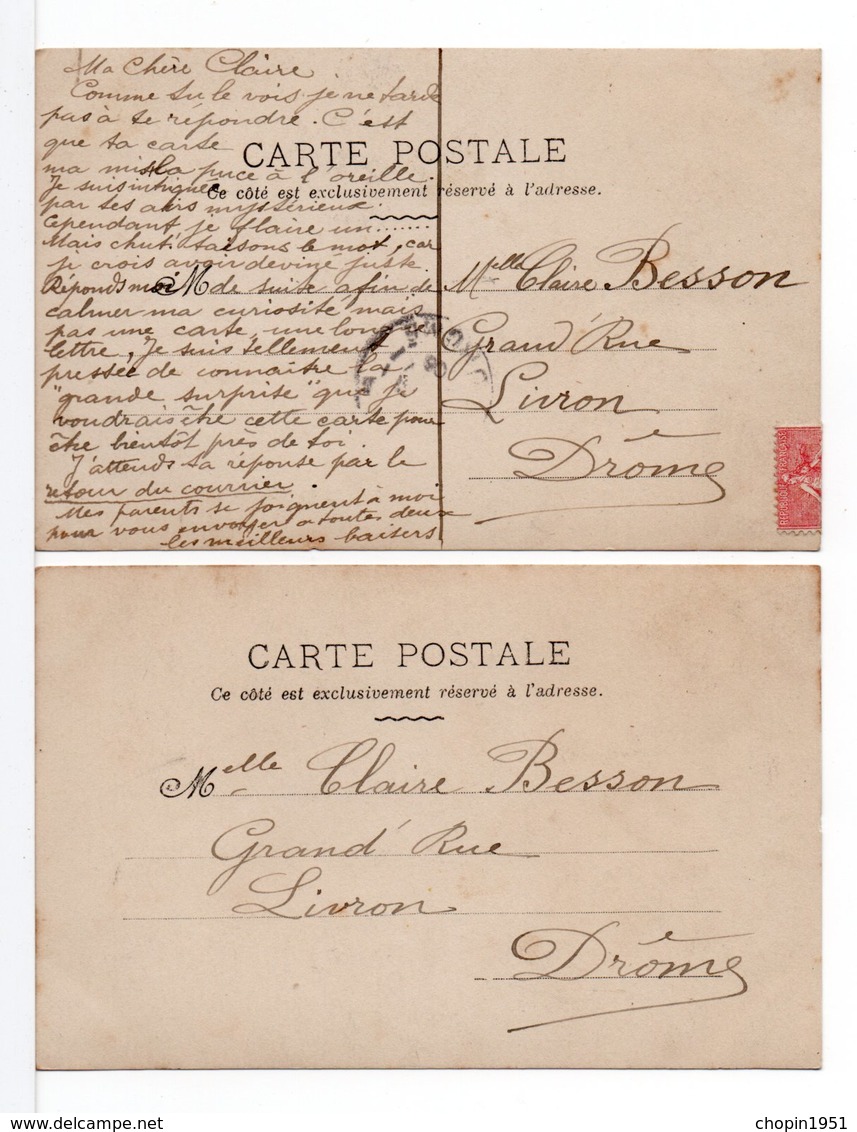 Ma Chère Claire
Comme tu le vois je ne tarde
pas à te répondre. C'est
que ta carte
ma mis la puce à l'oreille.
Je suis intriguée
par tes airs mystérieux.
Cependant je flaire un........
Mais chut! taisons le mot, car
je crois avoir deviné juste.
Réponds moi de suite afin de
calmer ma curiosité mais
pas une carte, une longue
lettre, Je suis tellement
pressée de connaitre la
"grande surprise" que je
voudrais être cette carte pour
être bientôt près de toi.
J'attends ta réponse par le
retour du courrier.
Mes parents se joignent à moi
pour vous envoyer a toutes deux
les meilleurs baisers
CARTE POSTALE
Ce côté est exclusivement réservé à l'adresse.
M
Melle Claire Besson
Grand' Rue
Livron
Drôme
REPUBLIQUE FRANÇAISE
CARTE POSTALE
Ce côté est exclusivement réservé à l'adresse.
Melle Claire Besson
Grand' Rue
Livron
Drôme
chopin1951